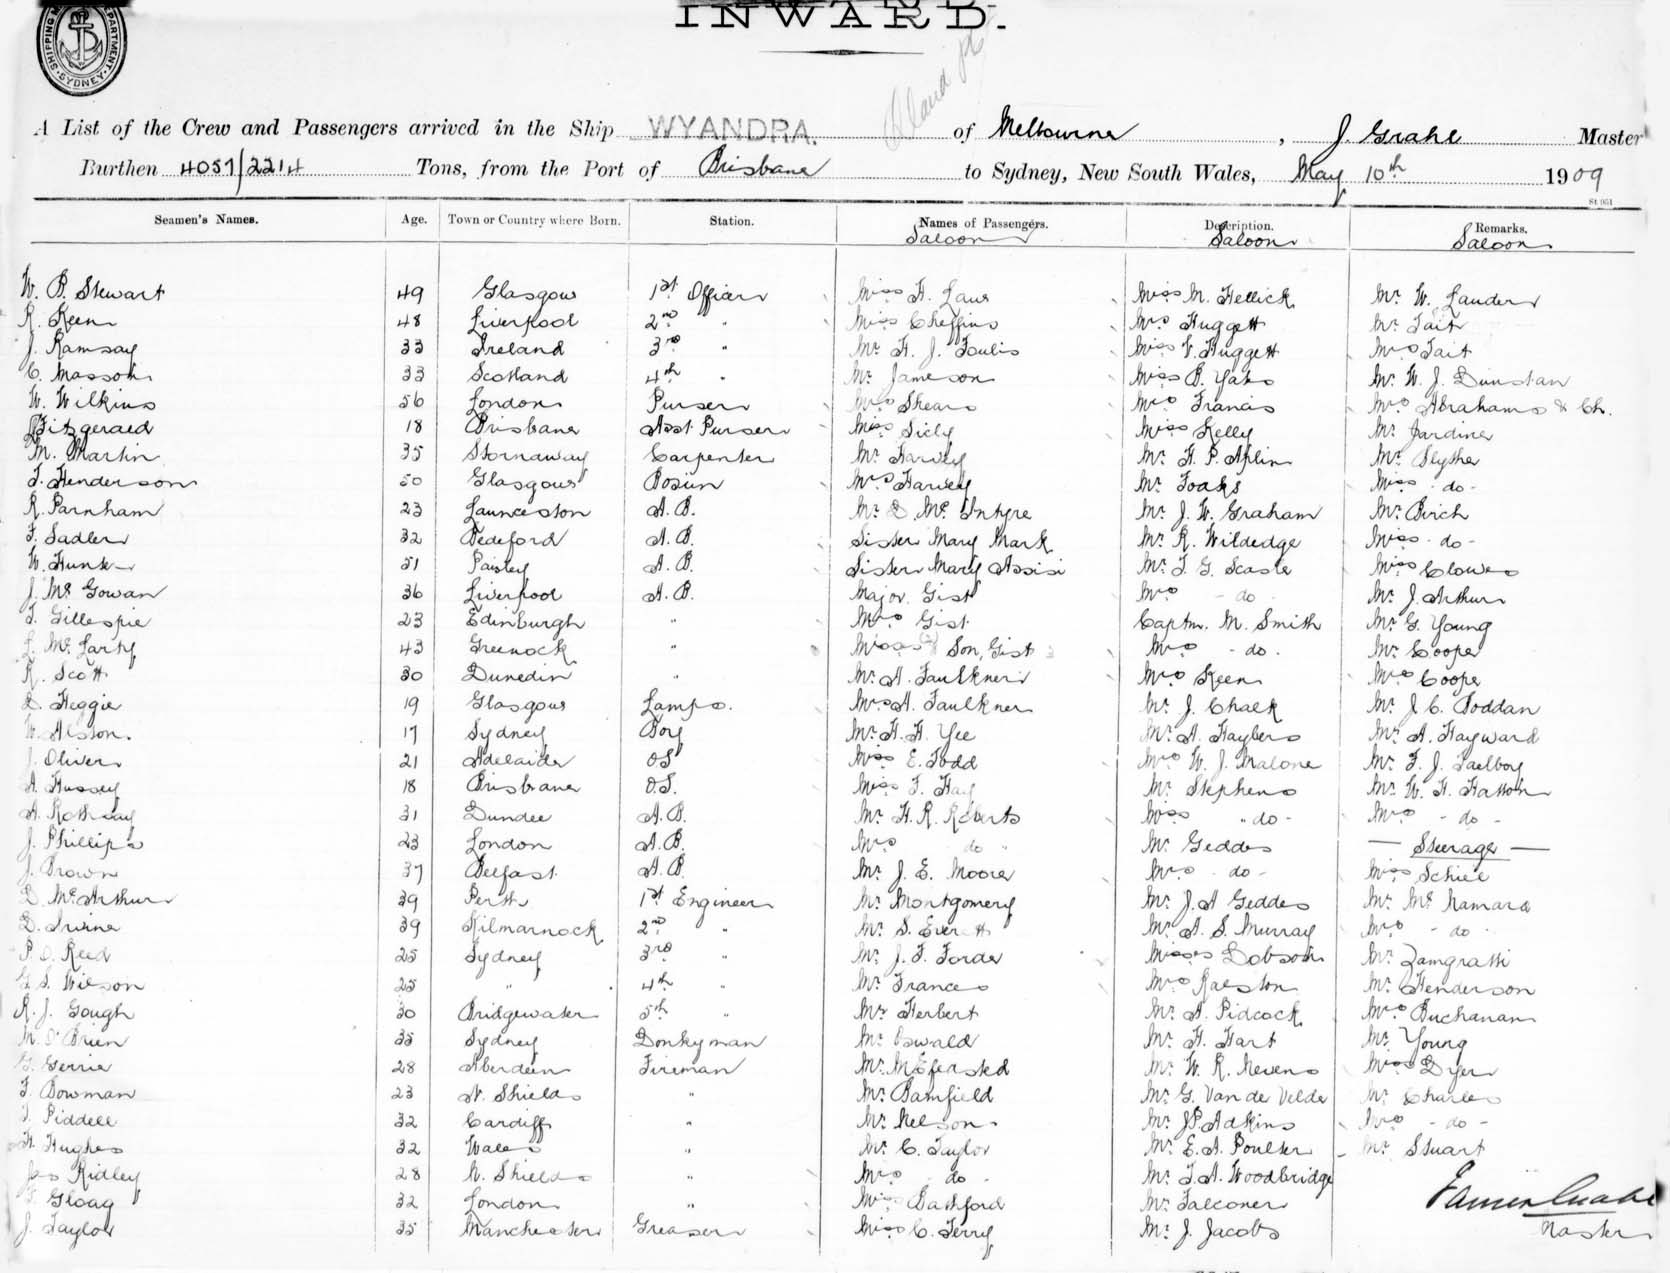 SHIPPING DEPARTMENT. SYDNEY
INWARD.
A List of the Crew and Passengers arrived in the Ship WYANDRA. of Melbourne, J. Grahl Master
Burthen 4057/2214 Tons, from the Port of Brisbane to Sydney, New South Wales, May 10th 1909
St 051
Seamen's Names. Age. Town or Country where Born. Station. Names of Passengers. Description. Remarks.
Saloon Saloon Saloon
W. B. Stewart 49 Glasgow 1st Officer Miss H. Laws Miss M. Hellick Mr W. Lauder
R. Keen 48 Liverpool 2nd " Miss Cheffins Mrs Huggett Mr Tait
J. Ramsay 33 Ireland 3rd " Mr H. J. Foulis Miss V. Huggett Mrs Tait
C. Masson 33 Scotland 4th " Mr Jameson Miss B. Mr W. J. Dunstan
W. Wilkins 56 London Purser Mrs Shears Mrs Francis Mrs Abrahams & Ch.
Fitzgerald 18 Brisbane Asst Purser Miss Sicly Miss Kelly Mr Jardine
M. Martin 35 Stornaway Carpenter Mr Harvey Mr H. P. Aplin Mr Slyther
T. Henderson 50 Glasgow Bosun Mrs Harvey Mr Foaks Miss - do -
R. Parnham 23 Launceston A. B. Mr D. McIntyre Mr J. W. Graham Mr Birch
F. Sadler 32 Bedeford A. B. Sister Mary Mark Mr R. Wildedge Miss - do -
W. Hunk 51 Paisley A. B. Sister Mary Assisi Mr T. G. Miss Clowes
J. McGowan 36 Liverpool A. B. Major Gist Mrs - do Mr J. Arthur
T. Gillespie 23 Edinburgh " Mrs Gist Captn. M. Smith Mr G. Young
L. McLarty 43 Greenock " Son, Gist Mrs - do - Mr Cooper
R. Scott 30 Dunedin " Mr A. Faulkner Mrs Keen Mrs Cooper
D. Heggie 19 Glasgow Lamps. Mrs A. Faulkner Mr J. Chalk Mr J. C. Boddan
W. Alston. 17 Sydney Boy Mr H. H. Yee Mr A. Haybers Mr A. Hayward
J. Oliver 21 Adelaide O S Miss E. Todd Mrs W. J. Malone Mr F. J. Taelboy
A. Hussey 18 Brisbane O. S. Miss F. Hay Mr Stephens Mr W. H. Hatton
A. Rothsay 31 Dundee A. B. Mr H. R. Roberts Miss " do - Mrs - do -
J. Phillips 23 London A. B. Mrs do " Mr Geddes — Steerage —
J. Brown 37 Belfast A. B. Mr J. E. Moore Mrs - do - Miss Schiel
D. McArthur 39 Perth 1st Engineer Mr Montgomery Mr J. A Geddes Mr McNamara
D. Irvine 39 Kilmarnock 2nd " Mr S. Everett Mr A. S. Murray Mrs - do -
P. O. Reid 25 Sydney 3rd " Mr J. F. Forde Misses Dobson Mr Zamgratti
G. S. Wilson 25 " 4th " Mr Frances Mrs Ralston Mr Henderson
R. J. Gough 30 Bridgewater 5th " Mr Herbert Mr A. Pidcock Mrs Buchanan
M. O'Brien 35 Sydney Donkyman Mr Oswald Mr H. Hart Mr Young
G. Gerrie 28 Aberdeen Fireman Mr Mr W. R. Nevens Miss Dyer
F. Bowman 23 N. Shields " Mr Bamfield Mr G. Van de Velde Mr Charles
T. Piddell 32 Cardiff " Mr Nelson. Mr J P Adkins Mrs - do -
H. Hughes 32 Wales " Mr C. Taylor Mr E. A. Poulter Mr Stuart
Jas Ridley 28 N. Shields " Mrs do - Mr T. A. Woodbridge
F. Gloag 32 London " Miss Mr Falconer
J. Taylor 35 Manchester Greaser Miss C. Terry Mr J. Jacobs Master